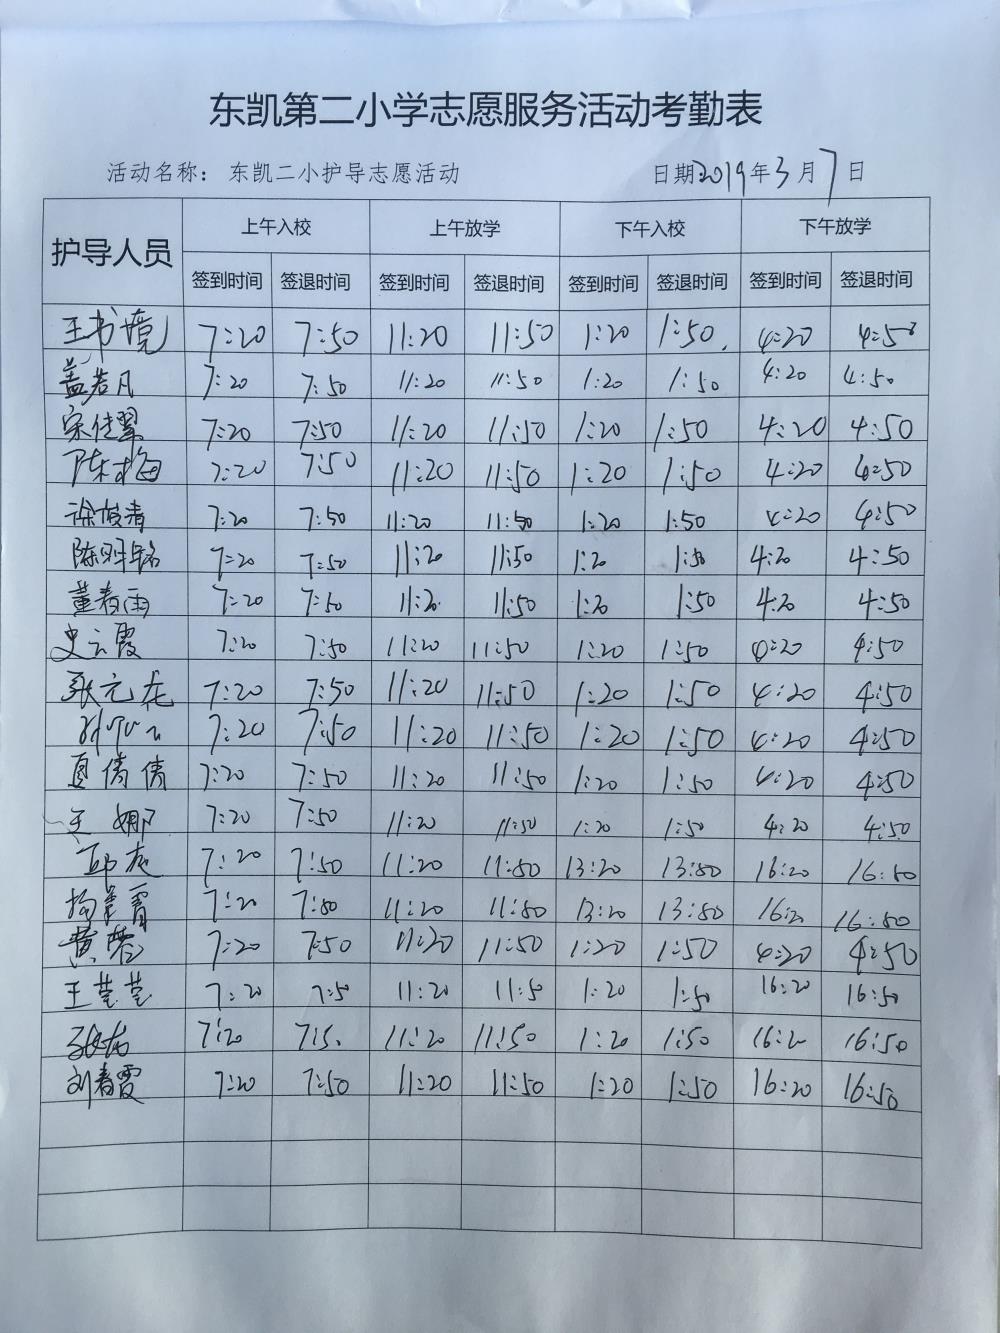 东凯第二小学志愿服务活动考勤表
活动名称： 东凯二小护导志愿活动 日期2019年3月7日
护导人员 上午入校 上午放学 下午入校 下午放学
签到时间 签退时间 签到时间 签退时间 签到时间 签退时间 签到时间 签退时间
王书境 7:20 7:50 11:20 11:50 1:20 1:50. 4:20 4:50
盖若凡 7:20 7:50 11:20 11:50 1:20 1:50 4:20 4:50
宋佳翠 7:20 7:50 11:20 11:50 1:20 1:50 4:20 4:50
陈梅 7:20 7:50 11:20 11:50 1:20 1:50 4:20 4:50
7:20 7:50 11:20 11:50 1:20 1:50 4:20 4:50
陈明铭 7:20 7:50 11:20 11:50 1:20 1:50 4:20 4:50
董春雨 7:20 7:50 11:20 11:50 1:20 1:50 4:20 4:50
史云霞 7:20 7:50 11:20 11:50 1:20 1:50 4:20 4:50
张元龙 7:20 7:50 11:20 11:50 1:20 1:50 4:20 4:50
7:20 7:50 11:20 11:50 1:20 1:50 4:20 4:50
夏倩倩 7:20 7:50 11:20 11:50 1:20 1:50 4:20 4:50
王娜 7:20 7:50 11:20 11:50 1:20 1:50 4:20 4:50
7:20 7:50 11:20 11:50 13:20 13:50 16:20 16:50
7:20 7:50 11:20 11:50 13:20 13:50 16:20 16:50
黄蓉 7:20 7:50 11:20 11:50 1:20 1:50 4:20 4:50
王莹莹 7:20 7:50 11:20 11:50 1:20 1:50 16:20 16:50
7:20 7:50 11:20 11:50 1:20 1:50 16:20 16:50
刘春霞 7:20 7:50 11:20 11:50 1:20 1:50 16:20 16:50